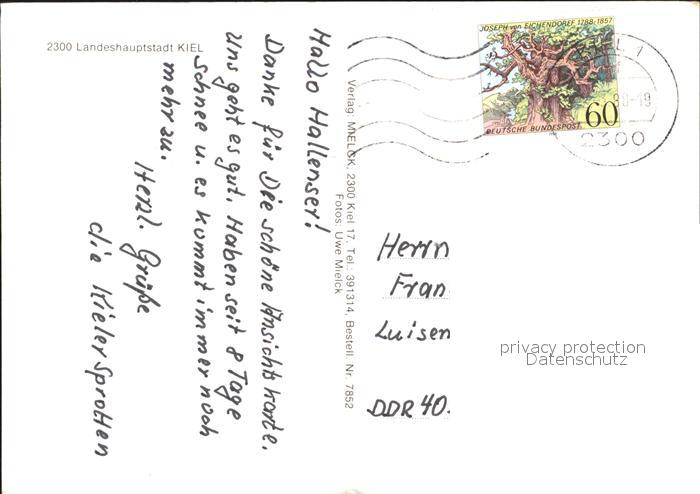 2300 Landeshauptstadt KIEL
Hallo Hallenser!
Danke für Die schöne Ansichtskarte.
Uns geht es gut. Haben seit 8 Tage
schnee u. es kommt immer noch
mehr zu.
Herzl. Grüße
die Kieler Sprotten
Verlag: MIELCK, 2300 Kiel 17, Tel.: 391314, Bestell. Nr. 7852
Fotos: Uwe Mielck
JOSEPH von EICHENDORFF 1788-1857
60
DEUTSCHE BUNDESPOST
KIEL 1
2300
Herrn
Fran
Luisen
DDR 40.
privacy protection
Datenschutz